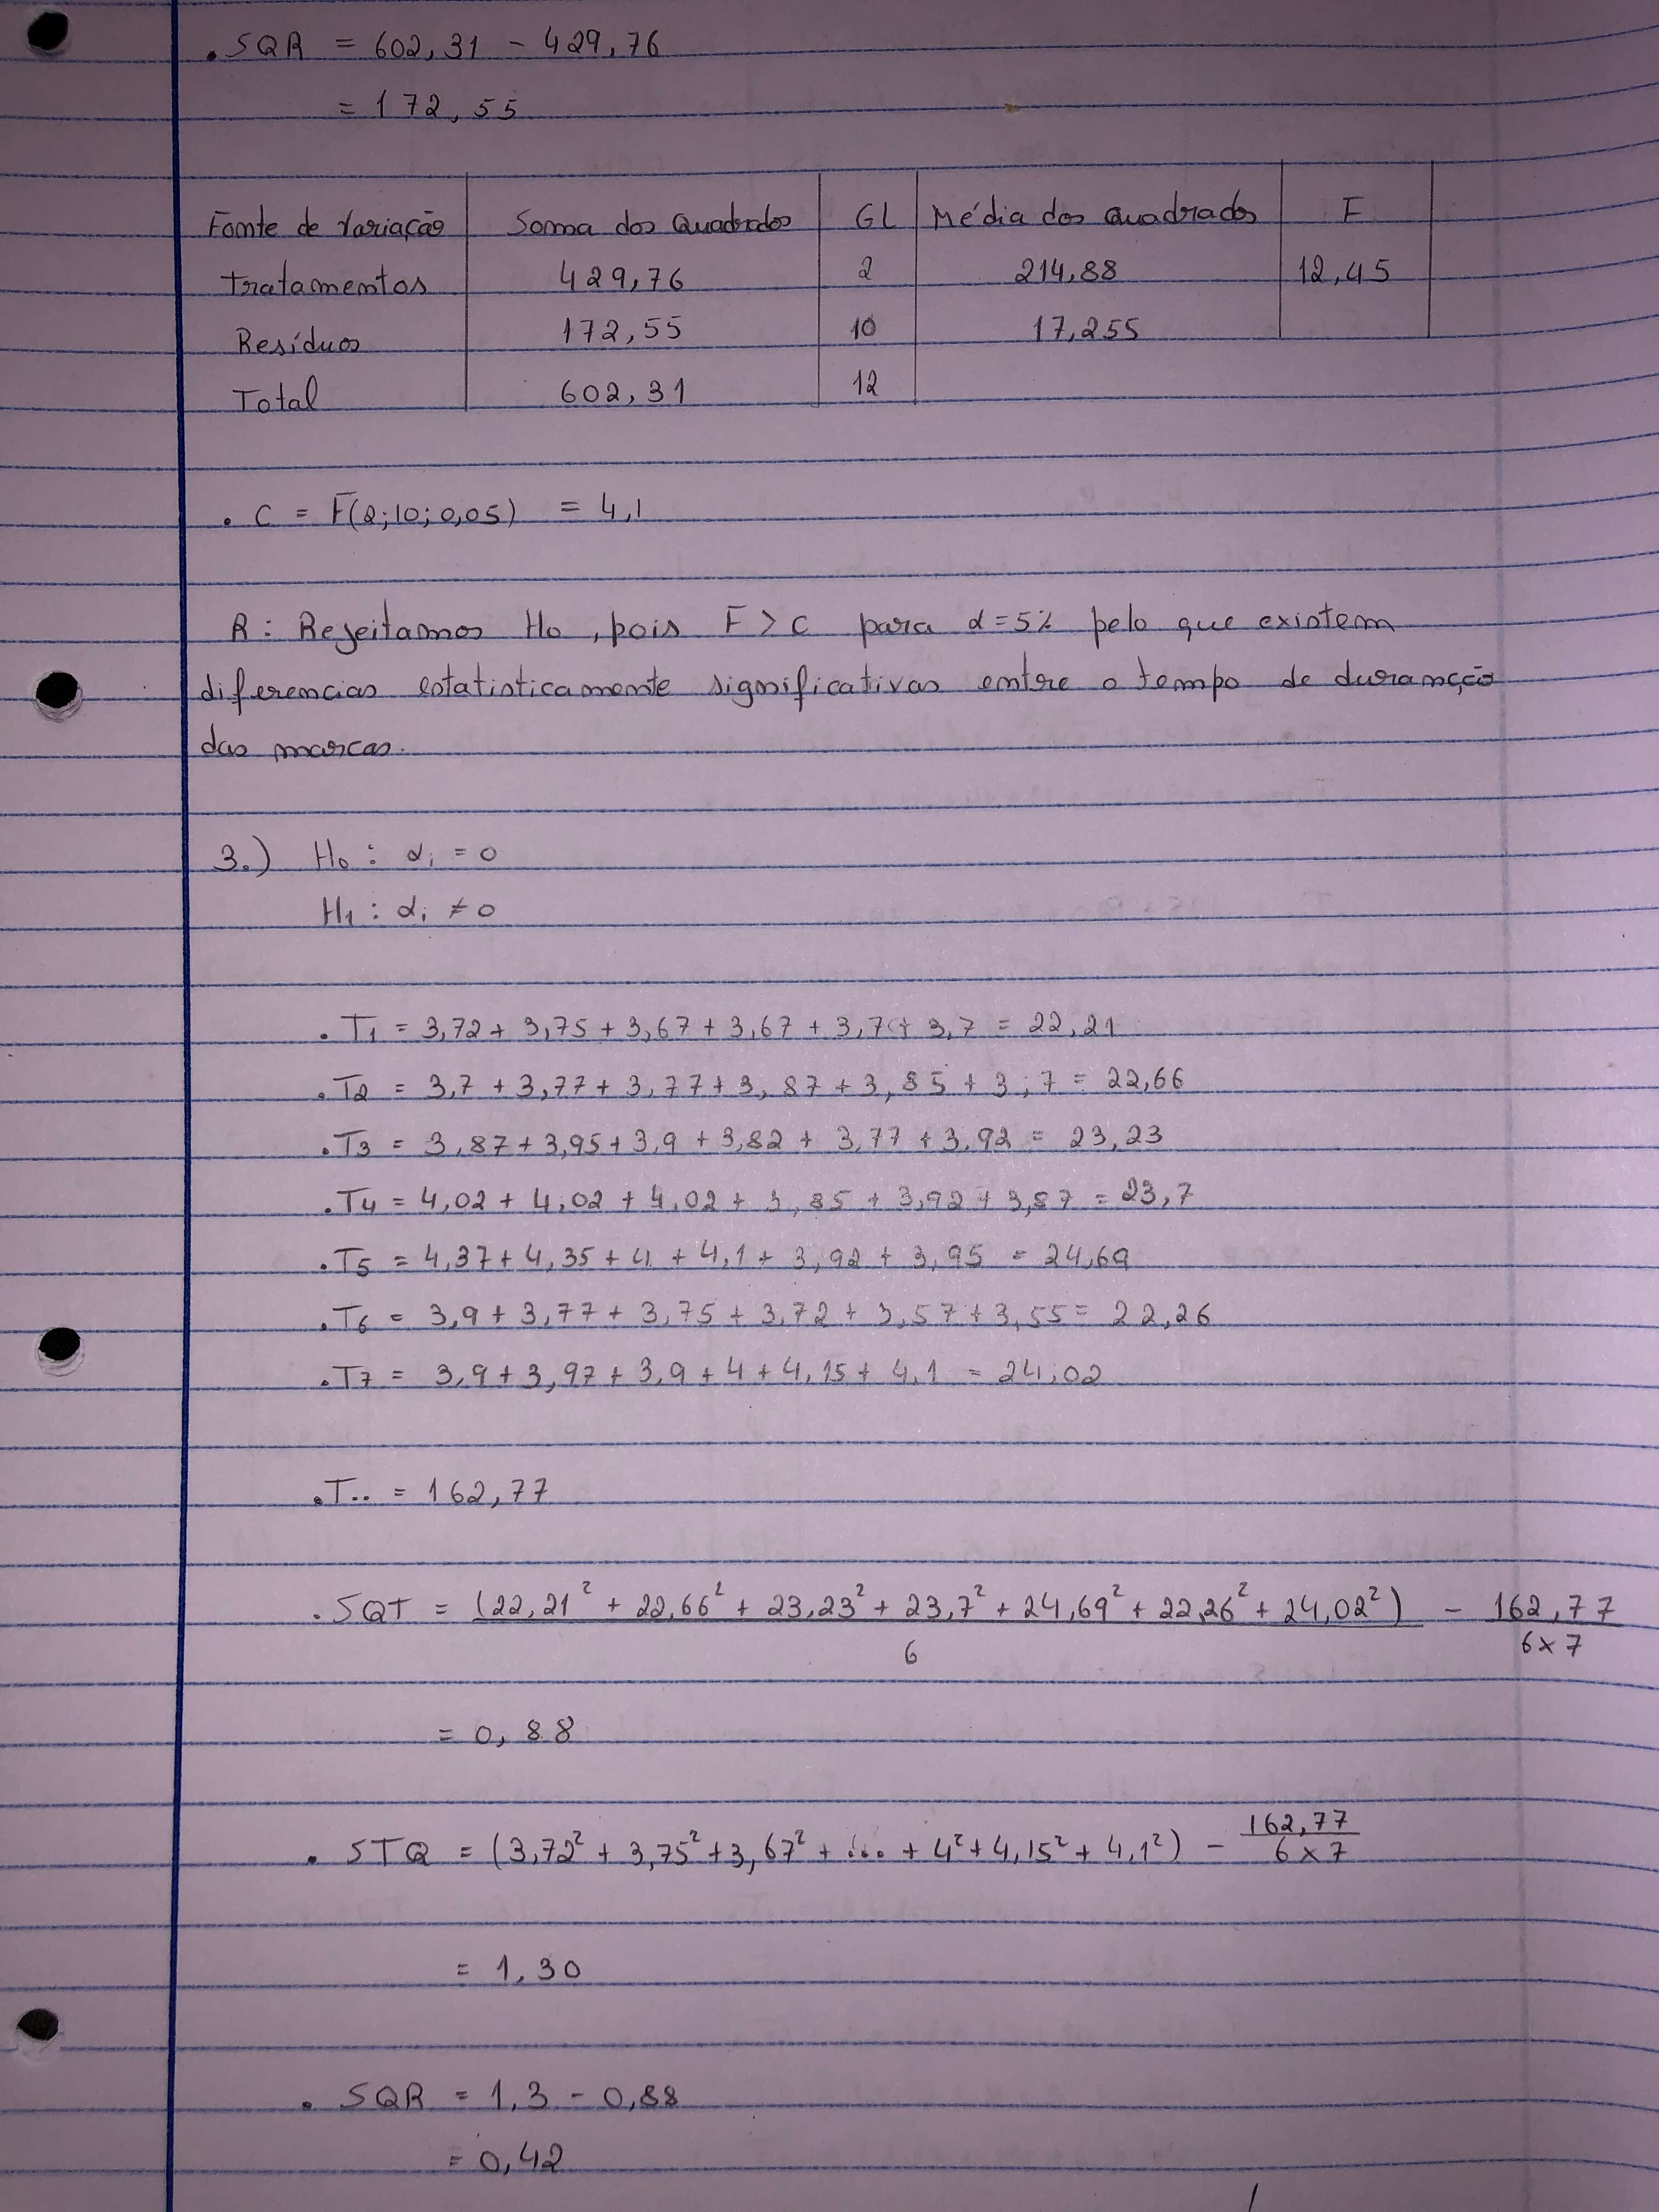 . SQR = 602,31 - 429,76
= 172,55
Fonte de Variação Soma dos Quadrados GL Média dos quadrados F
Tratamentos 429,76 2 214,88 12,45
Resíduos 172,55 10 17,255
Total 602,31 12
. C = F(2;10;0,05) = 4,1
R: Rejeitamos H0, pois F > C para α=5% pelo que existem
diferencias estatisticamente significativas entre o tempo de duranção
das marcas.
3.) H0 : αi = 0
H1 : αi ≠ 0
. T1 = 3,72 + 3,75 + 3,67 + 3,67 + 3,7 + 3,7 = 22,21
. T2 = 3,7 + 3,77 + 3,77 + 3,87 + 3,85 + 3,7 = 22,66
. T3 = 3,87 + 3,95 + 3,9 + 3,82 + 3,77 + 3,92 = 23,23
. T4 = 4,02 + 4,02 + 4,02 + 3,85 + 3,92 + 3,87 = 23,7
. T5 = 4,37 + 4,35 + 4 + 4,1 + 3,92 + 3,95 = 24,69
. T6 = 3,9 + 3,77 + 3,75 + 3,72 + 3,57 + 3,55 = 22,26
. T7 = 3,9 + 3,97 + 3,9 + 4 + 4,15 + 4,1 = 24,02
. T.. = 162,77
. SQT = (22,21² + 22,66² + 23,23² + 23,7² + 24,69² + 22,26² + 24,02²) - 162,77
6 6x7
= 0,88
. STQ = (3,72² + 3,75² + 3,67² + ... + 4² + 4,15² + 4,1²) - 162,77
6x7
= 1,30
. SQR = 1,3 - 0,88
= 0,42